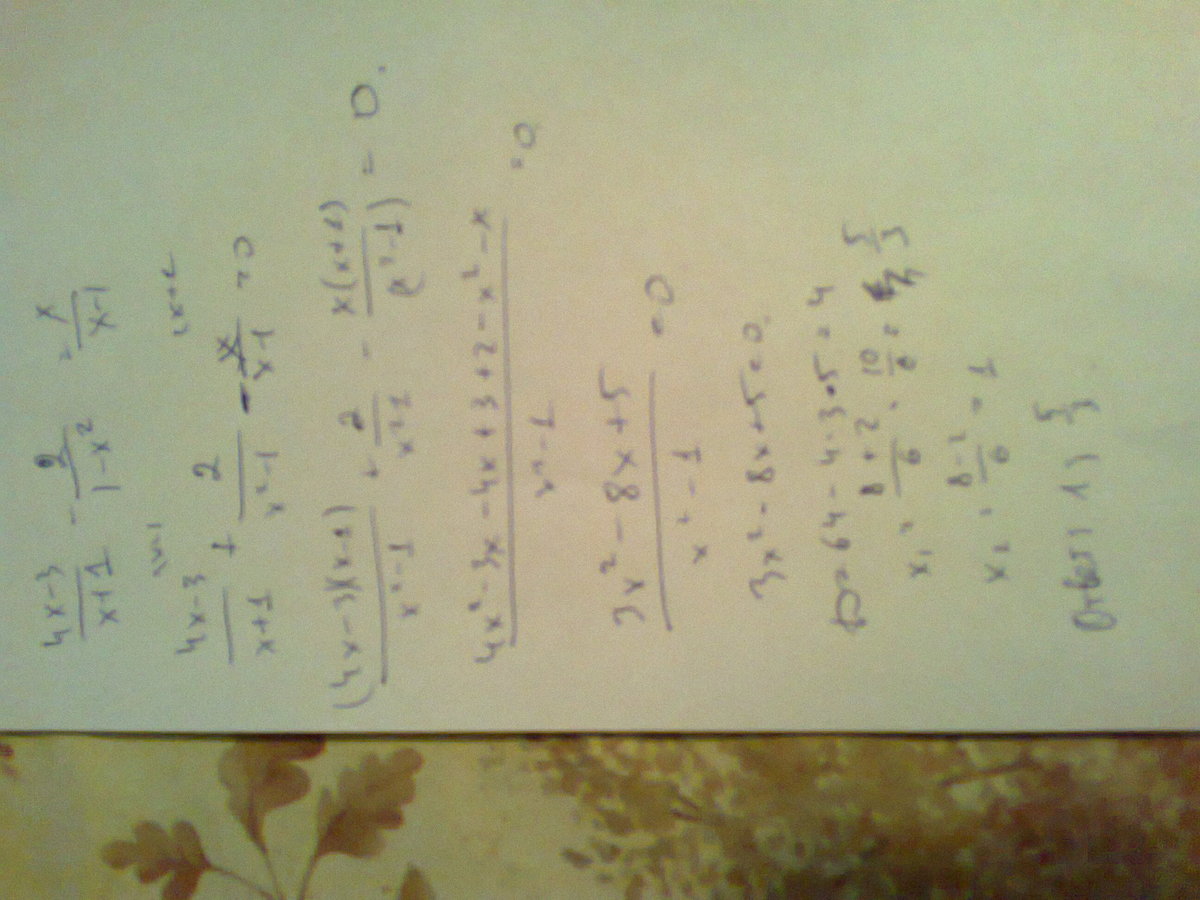 (4x-3)/(x+1) - 2/(1-x²) = x/(x-1)
(4x-3)/(x+1) + 2/(x²-1) - x/(x-1) = 0
((4x-3)(x-1))/(x²-1) + 2/(x²-1) - (x(x+1))/(x²-1) = 0.
(4x²-3x-4x+3+2-x²-x)/(x²-1) = 0.
(3x²-8x+5)/(x²-1) = 0
3x²-8x+5=0.
D=64-4·3·5=4
x₁ = (8+2)/6 = 10/6 = 5/3
x₂ = (8-2)/6 = 1
Ответ 1; 5/3